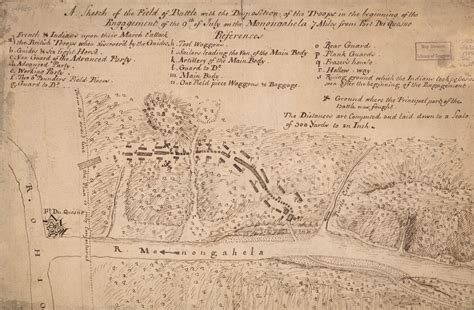 A Sketch of the Field of Battle with the Disposition of the Troops in the beginning of the
Engagement of the 9th of July on the Monongahela 7 Miles from Fort Du Quesne
References
French & Indians upon their March Attack
the British Troops when discovered by the Guides
b. Guides & Six Light Horse
c. Van Guard of the Advanced Party
d. Advanced Party
e. Working Party
f. Two 6 Pounder Field Pieces
g. Guard to Do.
h. Tool Waggons
i. leading the Van of the Main Body
k. Artillery of the Main Body
l. Guard to Do.
m. Main Body
n. One Field piece Waggons & Baggage
o. Rear Guard
p. Flank Guards
q. Frazer's house
r. Hollow way
s. Rising ground which the Indians took possession
soon after the beginning of the Engagement
* Ground where the Principal part of the
Battle was fought
The Distances are Computed and laid down to a Scale of
300 Yards to an Inch
Ft. Du Quesne
R. OHIO
R. Monongahela